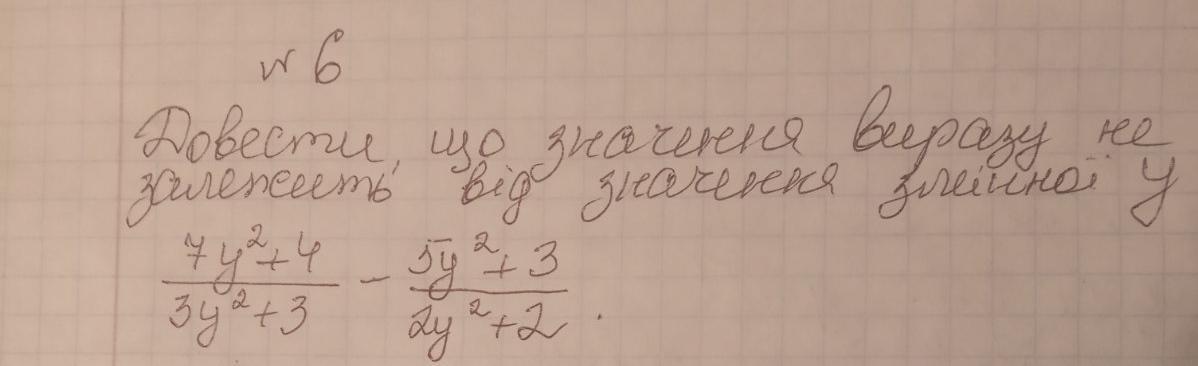 № 6
Довести, що значення виразу не
залежить від значення змінної y
\frac{7y^2+4}{3y^2+3} - \frac{5y^2+3}{2y^2+2}.